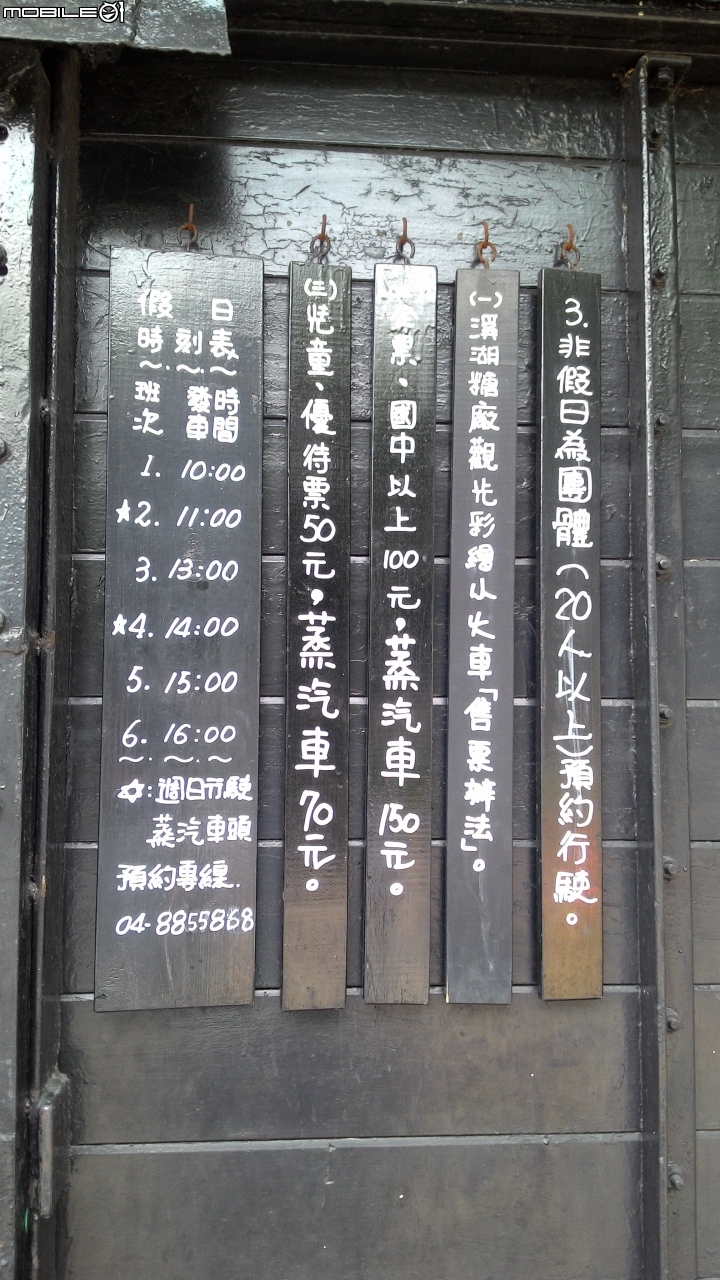 MOBILE01
3.非假日為團體(20人以上)預約行駛。
(一)溪湖糖廠觀光彩繪小火車「售票辦法」。
票、國中以上100元，蒸汽車150元。
(三)児童、優待票50元，蒸汽車70元。
假日
時刻表
～．～．～
班次 發車時間
1. 10:00
★2. 11:00
3. 13:00
★4. 14:00
5. 15:00
6. 16:00
～．～．～
✡:週日行駛
蒸汽車頭
預約專線.
04-8855868